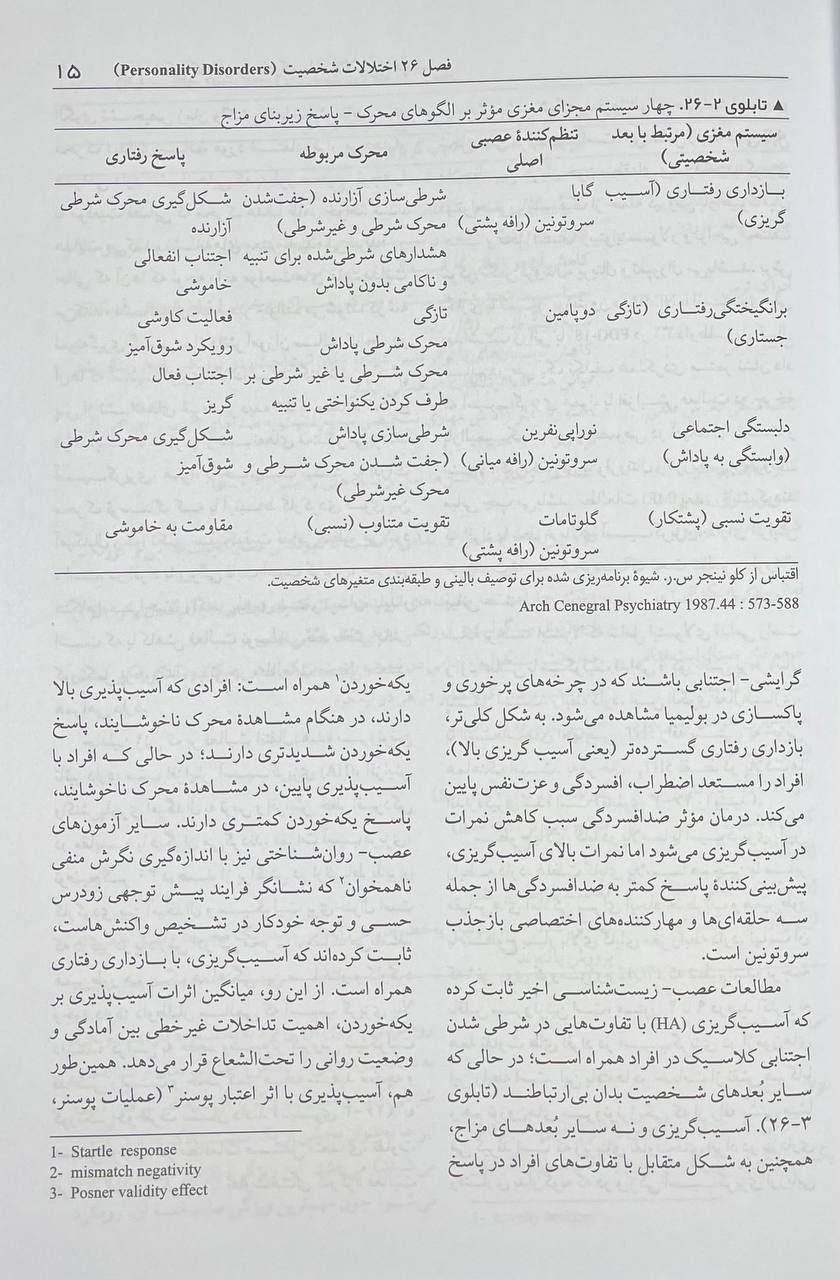 فصل ۲۶ اختلالات شخصیت (Personality Disorders) ۱۵
▲ تابلوی ۲-۲۶. چهار سیستم مجزای مغزی مؤثر بر الگوهای محرک - پاسخ زیربنای مزاج
سیستم مغزی (مرتبط با بعد تنظم‌کنندهٔ عصبی محرک مربوطه پاسخ رفتاری
شخصیتی) اصلی
بازداری رفتاری (آسیب گابا شرطی‌سازی آزارنده (جفت‌شدن شکل‌گیری محرک شرطی
گریزی) سروتونین (رافه پشتی) محرک شرطی و غیرشرطی) آزارنده
هشدارهای شرطی‌شده برای تنبیه اجتناب انفعالی
و ناکامی بدون پاداش خاموشی
برانگیختگی‌رفتاری (تازگی دوپامین تازگی فعالیت کاوشی
جستاری) محرک شرطی پاداش رویکرد شوق‌آمیز
محرک شرطی یا غیر شرطی بر اجتناب فعال
طرف کردن یکنواختی یا تنبیه گریز
دلبستگی اجتماعی نوراپی‌نفرین شرطی‌سازی پاداش شکل‌گیری محرک شرطی
(وابستگی به پاداش) سروتونین (رافه میانی) (جفت شدن محرک شرطی و شوق‌آمیز
محرک غیرشرطی)
تقویت نسبی (پشتکار) گلوتامات تقویت متناوب (نسبی) مقاومت به خاموشی
سروتونین (رافه پشتی)
اقتباس از کلو نینجر س.ر. شیوهٔ برنامه‌ریزی شده برای توصیف بالینی و طبقه‌بندی متغیرهای شخصیت.
Arch Cenegral Psychiatry 1987.44 : 573-588
گرایشی- اجتنابی باشند که در چرخه‌های پرخوری و
پاکسازی در بولیمیا مشاهده می‌شود. به شکل کلی‌تر،
بازداری رفتاری گسترده‌تر (یعنی آسیب گریزی بالا)،
افراد را مستعد اضطراب، افسردگی و عزت‌نفس پایین
می‌کند. درمان مؤثر ضدافسردگی سبب کاهش نمرات
در آسیب‌گریزی می‌شود اما نمرات بالای آسیب‌گریزی،
پیش‌بینی‌کنندهٔ پاسخ کمتر به ضدافسردگی‌ها از جمله
سه حلقه‌ای‌ها و مهارکننده‌های اختصاصی بازجذب
سروتونین است.
مطالعات عصب- زیست‌شناسی اخیر ثابت کرده
که آسیب‌گریزی (HA) با تفاوت‌هایی در شرطی شدن
اجتنابی کلاسیک در افراد همراه است؛ در حالی که
سایر بُعدهای شخصیت بدان بی‌ارتباطند (تابلوی
۳-۲۶). آسیب‌گریزی و نه سایر بُعدهای مزاج،
همچنین به شکل متقابل با تفاوت‌های افراد در پاسخ
یکه‌خوردن۱ همراه است: افرادی که آسیب‌پذیری بالا
دارند، در هنگام مشاهدهٔ محرک ناخوشایند، پاسخ
یکه‌خوردن شدیدتری دارند؛ در حالی که افراد با
آسیب‌پذیری پایین، در مشاهدهٔ محرک ناخوشایند،
پاسخ یکه‌خوردن کمتری دارند. سایر آزمون‌های
عصب- روان‌شناختی نیز با اندازه‌گیری نگرش منفی
ناهمخوان۲ که نشانگر فرایند پیش توجهی زودرس
حسی و توجه خودکار در تشخیص واکنش‌هاست،
ثابت کرده‌اند که آسیب‌گریزی، با بازداری رفتاری
همراه است. از این رو، میانگین اثرات آسیب‌پذیری بر
یکه‌خوردن، اهمیت تداخلات غیرخطی بین آمادگی و
وضعیت روانی را تحت‌الشعاع قرار می‌دهد. همین‌طور
هم، آسیب‌پذیری با اثر اعتبار پوسنر۳ (عملیات پوسنر،
1- Startle response
2- mismatch negativity
3- Posner validity effect